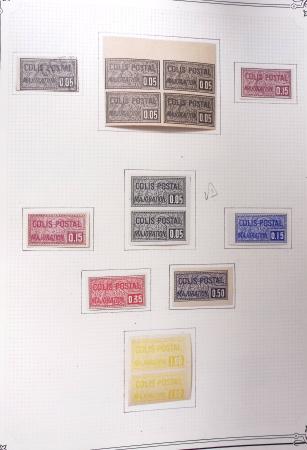 COLIS POSTAL
MAJORATION 0.05
COLIS POSTAL COLIS POSTAL
MAJORATION 0.05 MAJORATION 0.05
COLIS POSTAL COLIS POSTAL
MAJORATION 0.05 MAJORATION 0.05
COLIS POSTAL
MAJORATION 0.15
COLIS POSTAL
MAJORATION 0.05
COLIS POSTAL
MAJORATION 0.05
COLIS POSTAL
MAJORATION 0.15
COLIS POSTAL
MAJORATION 0.15
COLIS POSTAL
MAJORATION 0.35
COLIS POSTAL
MAJORATION 0.50
COLIS POSTAL
MAJORATION 1.00
COLIS POSTAL
MAJORATION 1.00